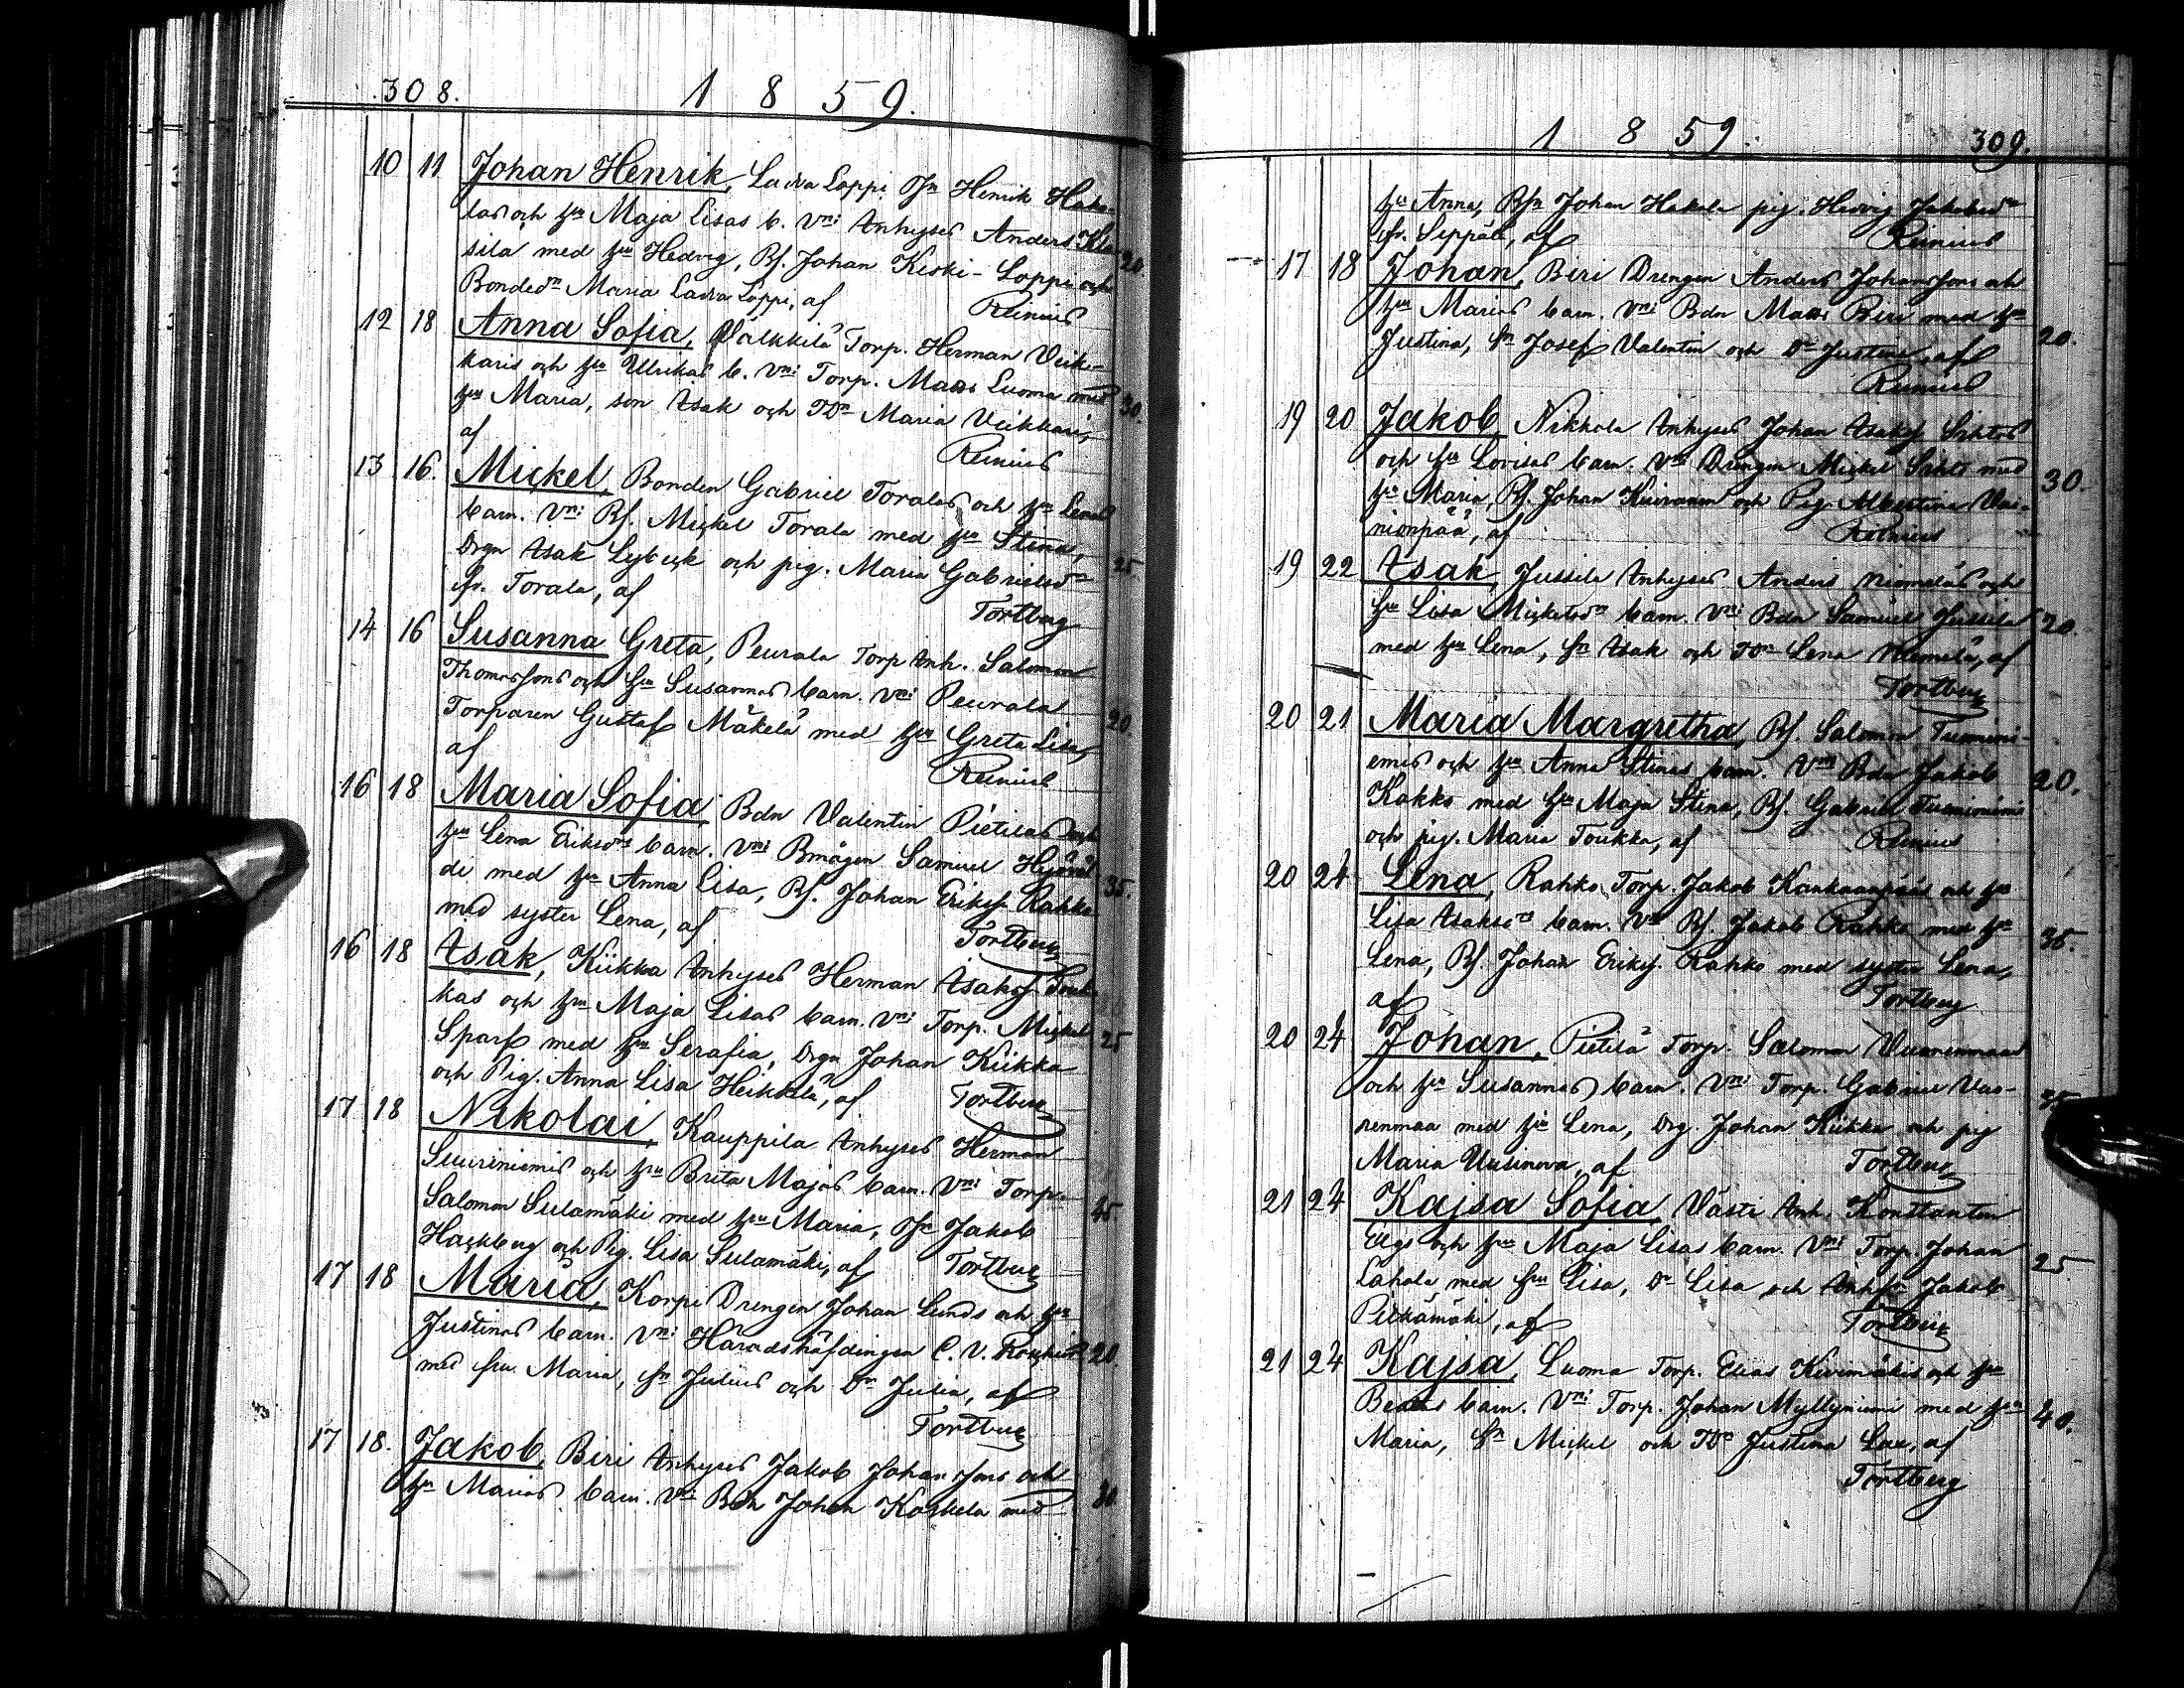 308. 1859.
10 11 Johan Henrik, Ladva Loppi Ofn Henrik Hako-
las och hu Maja Lisas b. Vn: Inhyses Anders Kle-
sila med hu Hedvig, Bs. Johan Keski-Loppi och 20
Bonded:r Maria Ladva Loppi, af Reinius
12 18 Anna Sofia, Välkkilä Torp. Herman Veik-
karis och hu Ulrikas b. Vn: Torp. Matts Luoma med 30.
hu Maria, son Isak och Dr Maria Veikkari,
af Reinius
13 16. Mickel, Bonden Gabriel Toralas och hu Lenas
barn. Vn: Bs. Mickel Torala med hu Stina, 25.
Drgn Isak Lybeck och pig. Maria Gabrielsdr
fr. Torala, af Tortberg
14 16 Susanna Greta, Peurala Torp Inh. Salomon
Thomassons och hu Susannas barn. Vn: Peurala
Torparen Gustaf Mäkelä med hu Greta Lisa, 20
af Reinius
16 18 Maria Sofia, Bdn Valentin Pietilas och
hu Lena Eriksdrs barn. Vn: Bmågen Samuel
di med hu Anna Lisa, Bs. Johan Eriks. Rahko 35.
med syster Lena, af Tortberg
16 18 Isak, Kiikka Inhyses Herman Isaks. Touk-
kas och hu Maja Lisas barn. Vn: Torp. Mickel 25
Sparf med hu Serafia, Drgn Johan Kiikka
och Pig. Anna Lisa Heikkilä, af Tortberg
17 18 Nikolai, Kauppila Inhyses Herman
Suiriniemis och hu Brita Majas barn. Vn: Torp.
Salomon Sulamäki med hu Maria, Ofn Jakob 45
Hackberg och Pig. Lisa Sulamäki, af Tortberg
17 18 Maria, Korpi Drengen Johan Lunds och hu
Justinas barn. Vn: Häradshöfdingen C. V. 20
med fru Maria, Sn Julius och Dr Julia, af
Tortberg
17 18. Jakob, Biri Inhyses Jakob Johanssons och
hu Marias barn. Vn: Bdn Johan Koskela med 30
1859. 309.
hu Anna, Bsn Johan Hakola pig. Hedvig Jakobsdr
fr. Seppälä, af Reinius
17 18 Johan, Biri Drengen Anders Johanssons och
hu Marias barn. Vn: Bdn Matts Biri med hu
Justina, Sn Josef Valentin och Dr Justina, af 20.
Reinius
19 20 Jakob, Nikkola Inhyses Johan Isaks. Sihtos
och hu Lovisas barn. Vn: Drengen Mickel Sihto med
hu Maria, Bs. Johan Kuivanen och Pig. Albertina Vai- 30.
nionpää, af Reinius
19 22 Isak, Jussila Inhyses Anders Niemeläs och
hu Lisa Mickelsdrs barn. Vn: Bdn Samuel Jussila 20.
med hu Lena, Sn Isak och Dr Lena Niemelä, af
Tortberg
20 21 Maria Margretha, Bs. Salomon Tuomini-
emis och hu Anna Stinas barn. Vn: Bdn Jakob
Kakko med hu Maja Stina, Bs. Gabriel Tuominiemi 20.
och pig. Maria Toukka, af Reinius
20 24 Lena, Rahko Torp. Jakob Kankaanpääs och hu
Lisa Isaksdrs barn. Vn: Bs. Jakob Rahko med hu 35.
Lena, Bs. Johan Eriks. Rahko med syster Lena,
af Tortberg
20 24 Johan, Pietilä Torp. Salomon Vuorenmaas
och hu Susannas barn. Vn: Torp. Gabriel Vuo- 35
renmaa med hu Lena, Drg. Johan Kiikka och pig
Maria Uusinova, af Tortberg
21 24 Kajsa Sofia, Västi Inh. Konstantin
Elgs och hu Maja Lisas barn. Vn: Torp. Johan
Lahola med hu Lisa, Dr Lisa och Johan 25.
Pitkämäki, af Tortberg
21 24 Kajsa, Luoma Torp. Elias Kivimäkis och hu
Beatas barn. Vn: Torp. Johan Myllyniemi med hu 40.
Maria, Sn Mickel och Dr Justina Lax, af
Tortberg